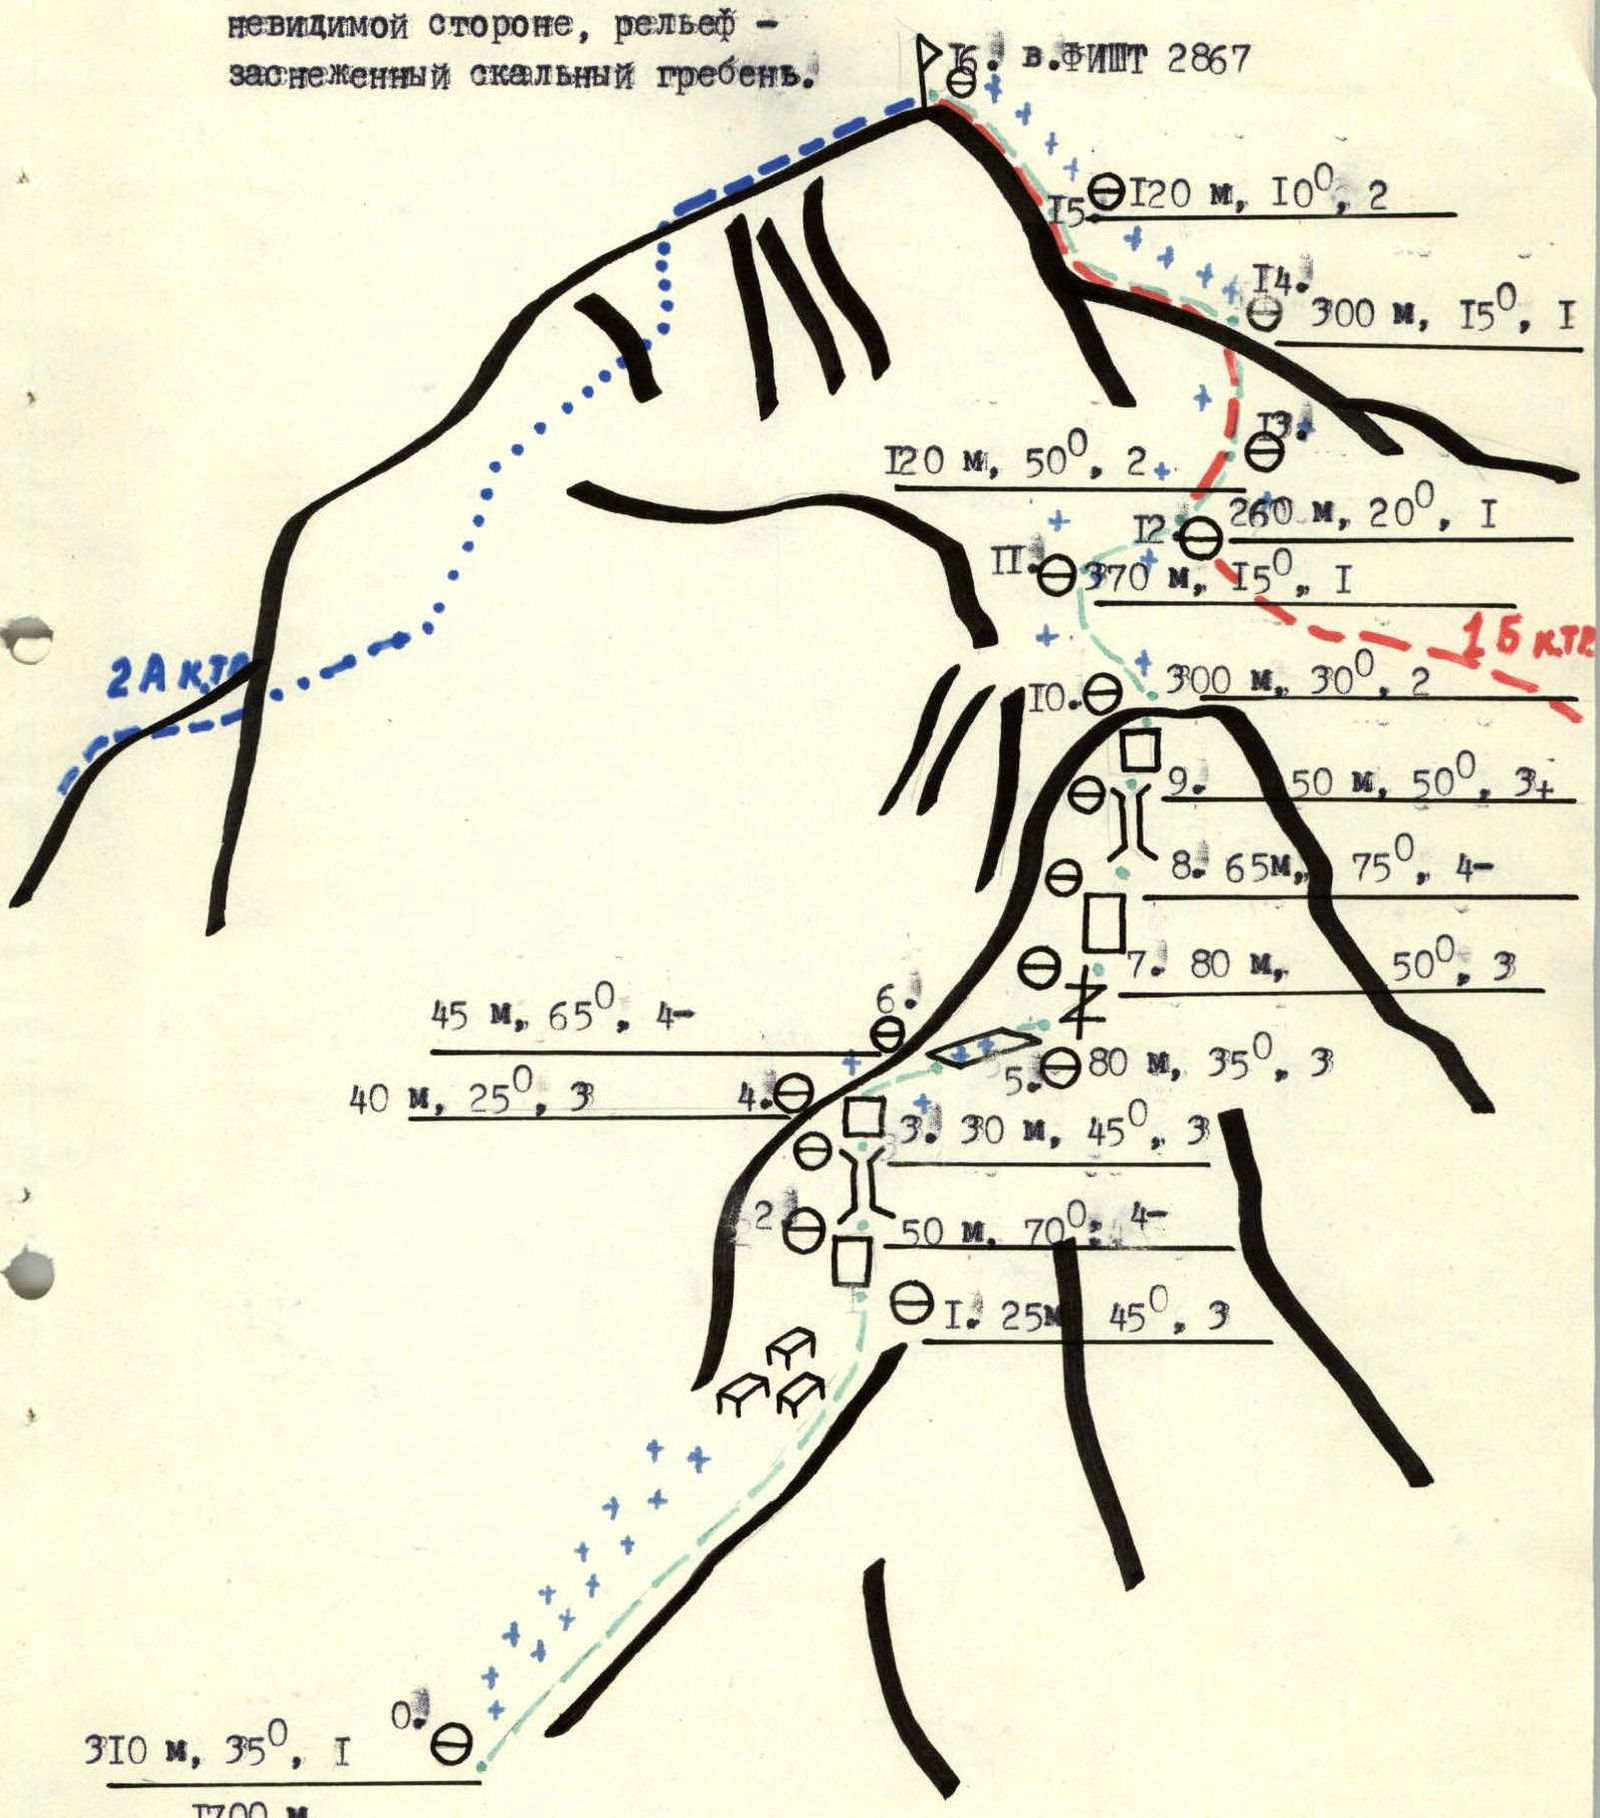 невидимой стороне, рельеф -
заснеженный скальный гребень.
16. в.ФИШТ 2867
15. 120 м, 10⁰, 2
14.
300 м, 15⁰, I
13.
120 м, 50⁰, 2
12. 260 м, 20⁰, I
11. 370 м, 15⁰, I
1Б к.тр.
2А к.тр.
10. 300 м, 30⁰, 2
9. 50 м, 50⁰, 3+
8. 65м, 75⁰, 4-
7. 80 м, 50⁰, 3
6.
45 м, 65⁰, 4-
5. 80 м, 35⁰, 3
40 м, 25⁰, 3 4.
3. 30 м, 45⁰, 3
2. 50 м. 70⁰, 4-
I. 25м 45⁰, 3
0.
310 м, 35⁰, I
1700 м